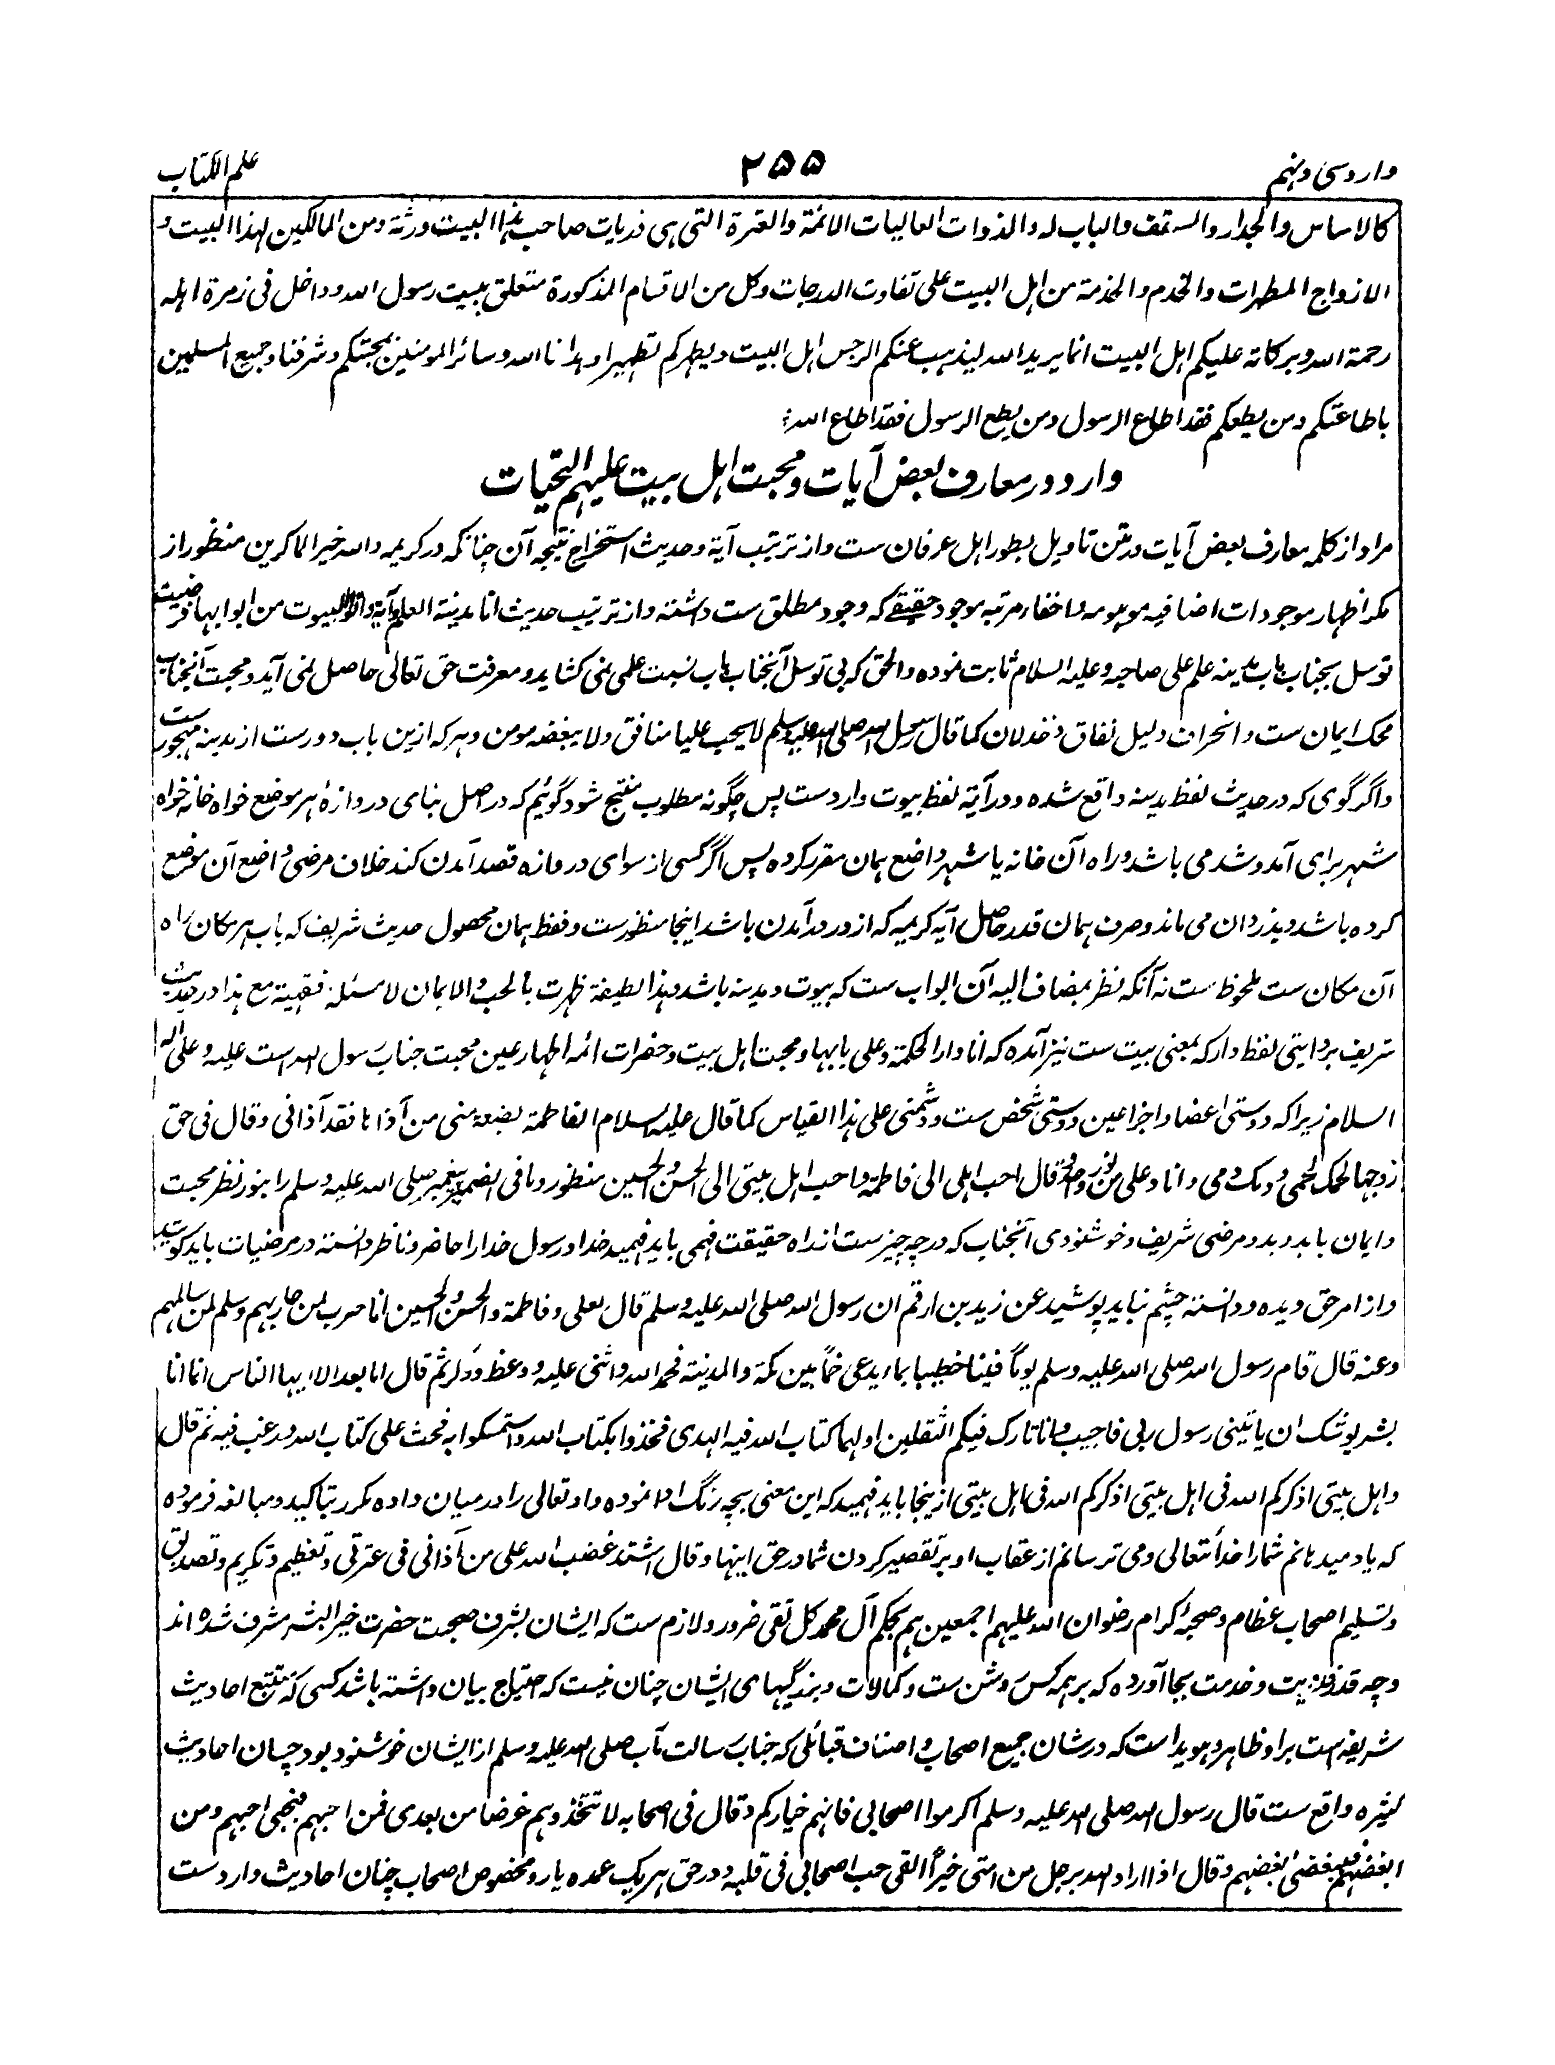 وارد سی و نهم
۲۵۵
علم الکتاب
کالاساس والجدار والسقف والباب له والذوات العالیات الائمة والعترة التی هی ذریات صاحب هذا البیت ورثة ومن المالکین لهذا البیت و
الازواج المطهرات والخدم والخدمة من اهل البیت علی تفاوت الدرجات وکل من الاقسام المذکورة متعلق ببیت رسول الله وداخل فی زمرة اهله
رحمة الله وبرکاته علیکم اهل البیت انما یرید الله لیذهب عنکم الرجس اهل البیت ویطهرکم تطهیرا وهدانا الله وسائر المومنین بمحبتکم وشرفنا وجمیع المسلمین
باطاعتکم ومن یطعکم فقد اطاع الرسول ومن یطع الرسول فقد اطاع الله
وارد در معارف بعض آیات و محبت اهل بیت علیهم التحیات
مراد از کلمه معارف بعض آیات در متن تاویل بطور اهل عرفان ست و از ترتیب آیة و حدیث استخراج نتیجه آن چنانکه در کریمه والله خیر الماکرین منظور از
مکر اظهار موجودات اضافیه موهومه و اخفاء مرتبه موجود حقیقے که وجود مطلق ست داشته و از ترتیب حدیث انا مدینة العلم وآیة واتوا البیوت من ابوابها فرضیت
توسل بجناب باب مدینه علم علی صاحبه وعلیه السلام ثابت نموده والحق که بی توسل آنجناب باب نسبت علمی نمی کشاید و معرفت حق تعالی حاصل نمی آید و محبت آنجناب
محک ایمان ست و انحراف دلیل نفاق و خذلان کما قال رسول الله صلی الله علیه وسلم لا یحب علیا منافق ولا یبغضه مومن و هر که ازین باب دورست از مدینه مهجور ست
و اگر گوی که در حدیث لفظ مدینه واقع شده و در آیة لفظ بیوت واردست پس چگونه مطلوب منتج شود گوئیم که در اصل بنای دروازۀ هر موضع خواه خانه خواه
شهر برای آمد و شد می باشد و راه آن خانه یا شهر واضع همان مقرر کرده پس اگر کسی از سوای دروازه قصد آمدن کند خلاف مرضی واضع آن موضع
کرده باشد و بذردان می ماند و صرف همان قدر حاصل آیه کریمه که از در درآمدن باشد اینجا منظورست و فقط همان محصول حدیث شریف که باب هر مکان راه
آن مکان ست ملحوظ ست نه آنکه نظر بمضاف الیه آن ابواب ست که بیوت و مدینه باشد وهذا لطیفة ظهرت بالحب والایمان لا مسئلة فقهیة مع هذا در حدیث
شریف بروایتی لفظ دار که بمعنی بیت ست نیز آمده که انا دار الحکمة وعلی بابها و محبت اهل بیت و حضرات ائمه اطهار عین محبت جناب رسول الله است علیه وعلی اله
السلام زیرا که دوستی اعضا و اجزا عین دوستی شخص ست و دشمنی علی هذا القیاس کما قال علیه السلام الفاطمة بضعة منی من آذاها فقد آذانی وقال فی حق
زوجها لحمک لحمی ودمک دمی وانا وعلی من نور واحد وقال احب اهلی الی فاطمة واحب اهل بیتی الی الحسن والحسین منظور و ما فی الضمیر پیغمبر صلی الله علیه وسلم را بنور نظر محبت
و ایمان باید دید و مرضی شریف و خوشنودی آنجناب که در چه چیز ست از راه حقیقت فهمی باید فهمید خدا و رسول خدا را حاضر و ناظر دانسته در مرضیات باید کوشید
و از امر حق دیده و دانسته چشم نباید پوشید عن زید بن ارقم ان رسول الله صلی الله علیه وسلم قال لعلی وفاطمة والحسن والحسین انا حرب لمن حاربهم وسلم لمن سالمهم
وعنه قال قام رسول الله صلی الله علیه وسلم یوماً فینا خطیبا بماء یدعی خماً بین مکة والمدینة فحمد الله واثنی علیه ووعظ وذکر ثم قال اما بعد الا ایها الناس انما انا
بشر یوشک ان یاتینی رسول ربی فاجیب وانا تارک فیکم الثقلین اولهما کتاب الله فیه الهدی فخذوا بکتاب الله واستمسکوا به فحث علی کتاب الله ورغب فیه ثم قال
واهل بیتی اذکرکم الله فی اهل بیتی اذکرکم الله فی اهل بیتی ازینجا باید فهمید که این معنی بچه رنگ ادا نموده و او تعالی را درمیان داده مکرر بتاکید و مبالغه فرموده
که یاد میدهانم شما را خدا تعالی و می ترسانم از عقاب او بر تقصیر کردن شما در حق اینها وقال اشتد غضب الله علی من آذانی فی عترتی و تعظیم و تکریم و تصدیق
و تسلیم اصحاب عظام و صحبه کرام رضوان الله علیهم اجمعین هم بحکم آل محمد کل تقی ضرور و لازم ست که ایشان بشرف صحبت حضرت خیر البشر مشرف شده اند
و چه قدر فدویت و خدمت بجا آورده که بر همه کس روشن ست و کمالات و بزرگیهای ایشان چنان نیست که احتیاج بیان داشته باشد کسی که متتبع احادیث
شریفه است براو ظاهر و هویداست که در شان جمیع اصحاب و اصناف قبائلی که جناب رسالت مآب صلی الله علیه وسلم از ایشان خوشنود بود چسان احادیث
کثیره واقع ست قال رسول الله صلی الله علیه وسلم اکرموا اصحابی فانهم خیارکم وقال فی اصحابه لا تتخذوهم غرضا من بعدی فمن احبهم فبحبی احبهم ومن
ابغضهم فببغضی ابغضهم وقال اذا اراد الله برجل من امتی خیراً القی حب اصحابی فی قلبه و در حق هر یک عمده یار و مخصوص اصحاب چنان احادیث واردست